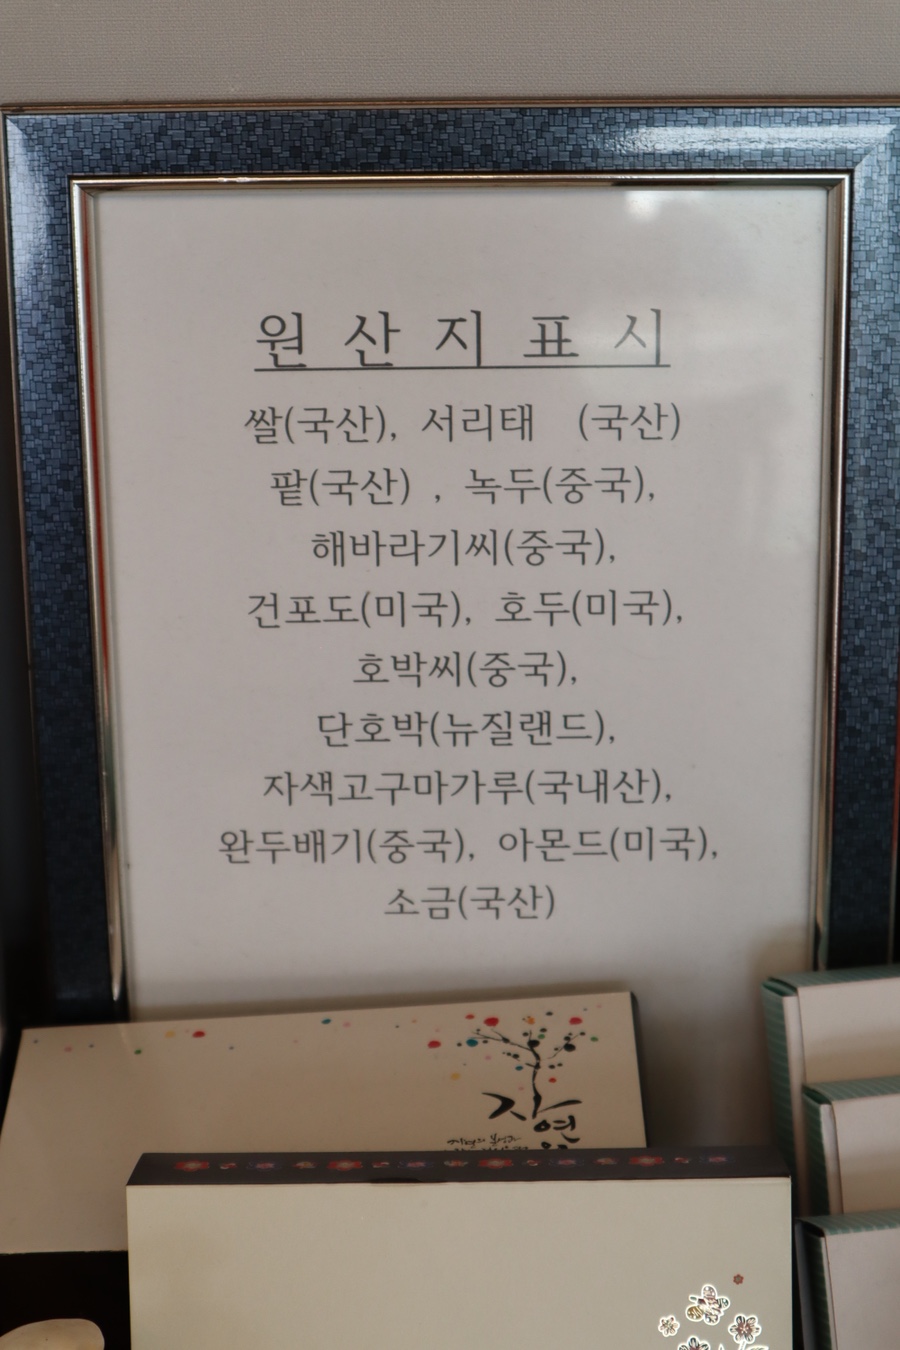 원 산 지 표 시
쌀(국산), 서리태 (국산)
팥(국산) , 녹두(중국),
해바라기씨(중국),
건포도(미국), 호두(미국),
호박씨(중국),
단호박(뉴질랜드),
자색고구마가루(국내산),
완두배기(중국), 아몬드(미국),
소금(국산)
자연